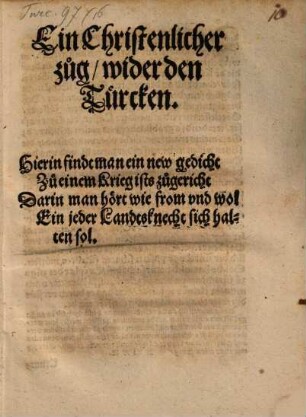 Turc. 97 76
10
Ein Christenlicher
zůg / wider den
Türcken.
Hierin findt man ein new gedicht
Zů einem Krieg ists zůgericht
Darin man hört wie from vnd wol
Ein jeder Landesknecht sich hal-
ten sol.